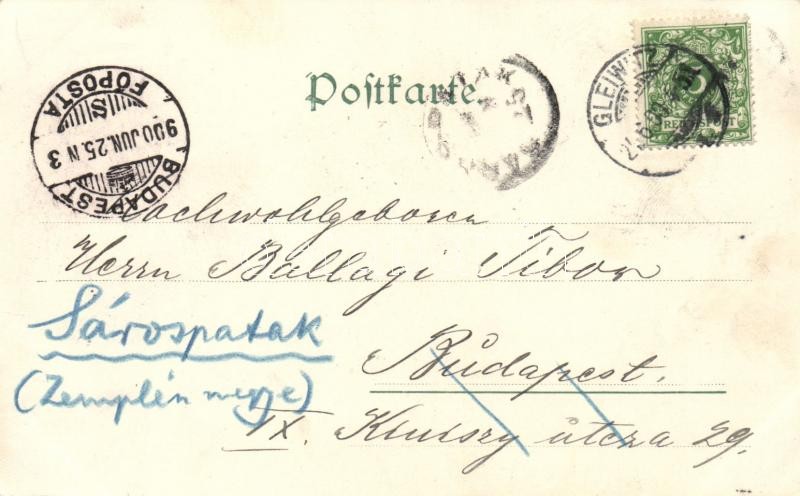 Postkarte.
GLEIWITZ
5
REICHSPOST
BUDAPEST
900 JUN. 25. N 3
S
FŐPOSTA
Hochwohlgeboren
Herrn Ballagi Tibor
Sárospatak
Budapest.
(Zemplén megye)
IX. Kinizsy útcza 29.